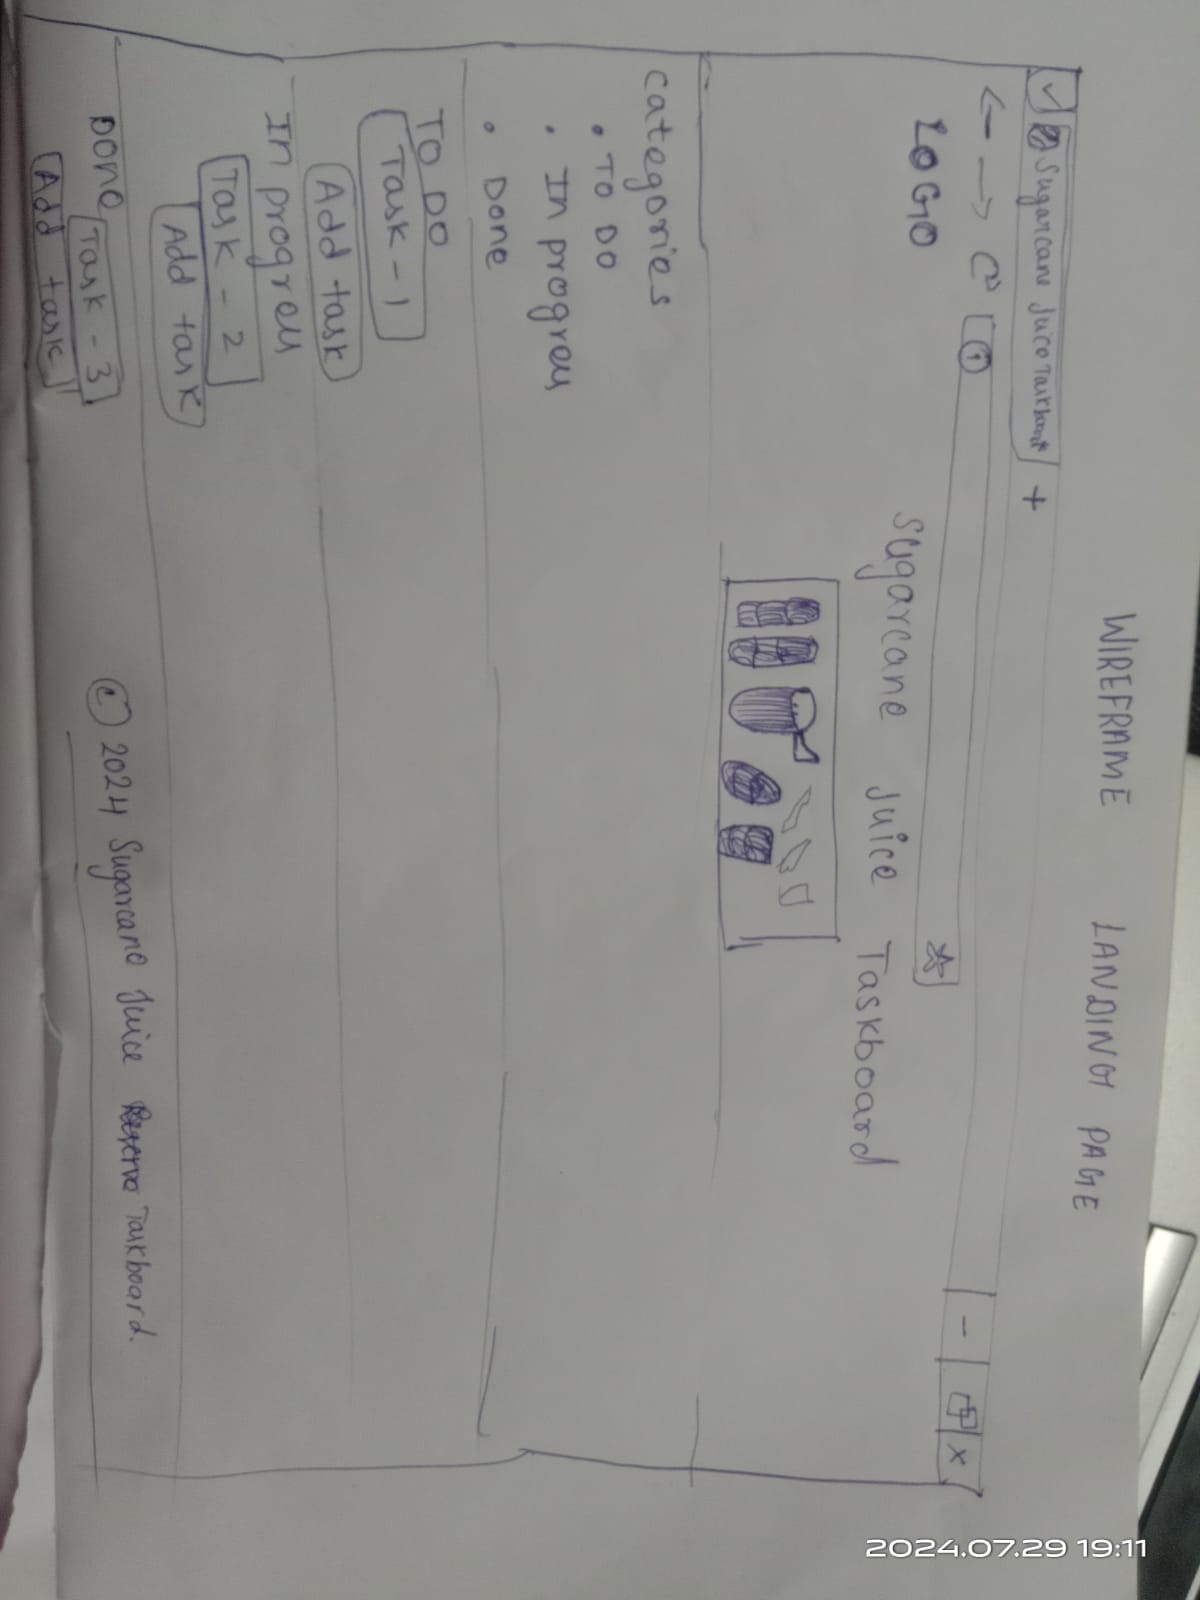 WIREFRAME LANDING PAGE
Sugarcane Juice Taskboard +
- x
LOGO
Sugarcane Juice Taskboard
categories
• To Do
• In progress
• Done
To Do
Task - 1
Add task
In progress
Task - 2
Add task
Done
Task - 3
Add task
© 2024 Sugarcane Juice Taskboard.
2024.07.29 19:11